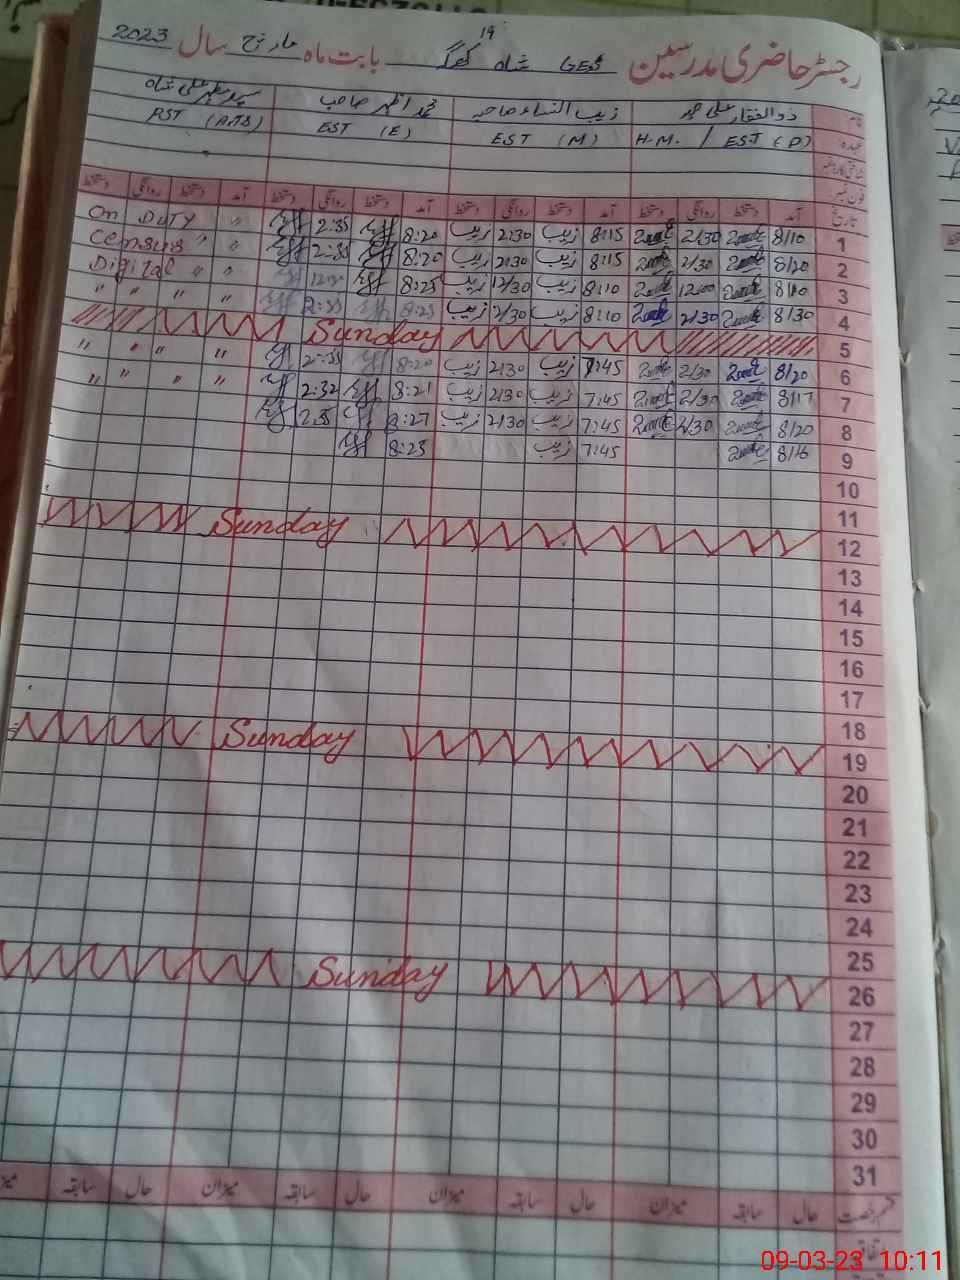 رجسٹر حاضری مدرسین GES شاہ بابت ماہ مارچ سال 2023
نام ذوالفقار علی زیب النساء صاحبہ محمد اظہر صاحب سید علی شاہ
عہدہ H.M. / EST (P) EST (M) EST (E) PST (Arts)
فون نمبر
تاریخ آمد دستخط روانگی دستخط آمد دستخط روانگی دستخط آمد دستخط روانگی دستخط آمد دستخط روانگی دستخط
1 8/10 2/30 8:15 زیب 2:30 زیب 8:20 2:35 On Duty "
2 8/20 2/30 8:15 زیب 2:30 زیب 8:20 2:35 Census " "
3 8/10 12:00 8:10 زیب 12/30 زیب 8:25 12:30 Digital " "
4 8/30 2/30 8:10 زیب 2/30 زیب 8:25 2:35 " " " "
5 Sunday
6 8/20 2/30 7:45 زیب 2:30 زیب 8:20 2:35 " " " "
7 8/17 2/30 7:45 زیب 2:30 زیب 8:21 2:32 " " " "
8 8/20 2/30 7:45 زیب 2:30 زیب 8:27 2:35
9 8/16 7:45 زیب 8:25
10
11
12 Sunday
13
14
15
16
17
18
19 Sunday
20
21
22
23
24
25
26 Sunday
27
28
29
30
31
قسم رخصت حال سابقہ میزان حال سابقہ میزان حال سابقہ میزان حال سابقہ میزان
اتفاقیہ
09-03-23 10:11